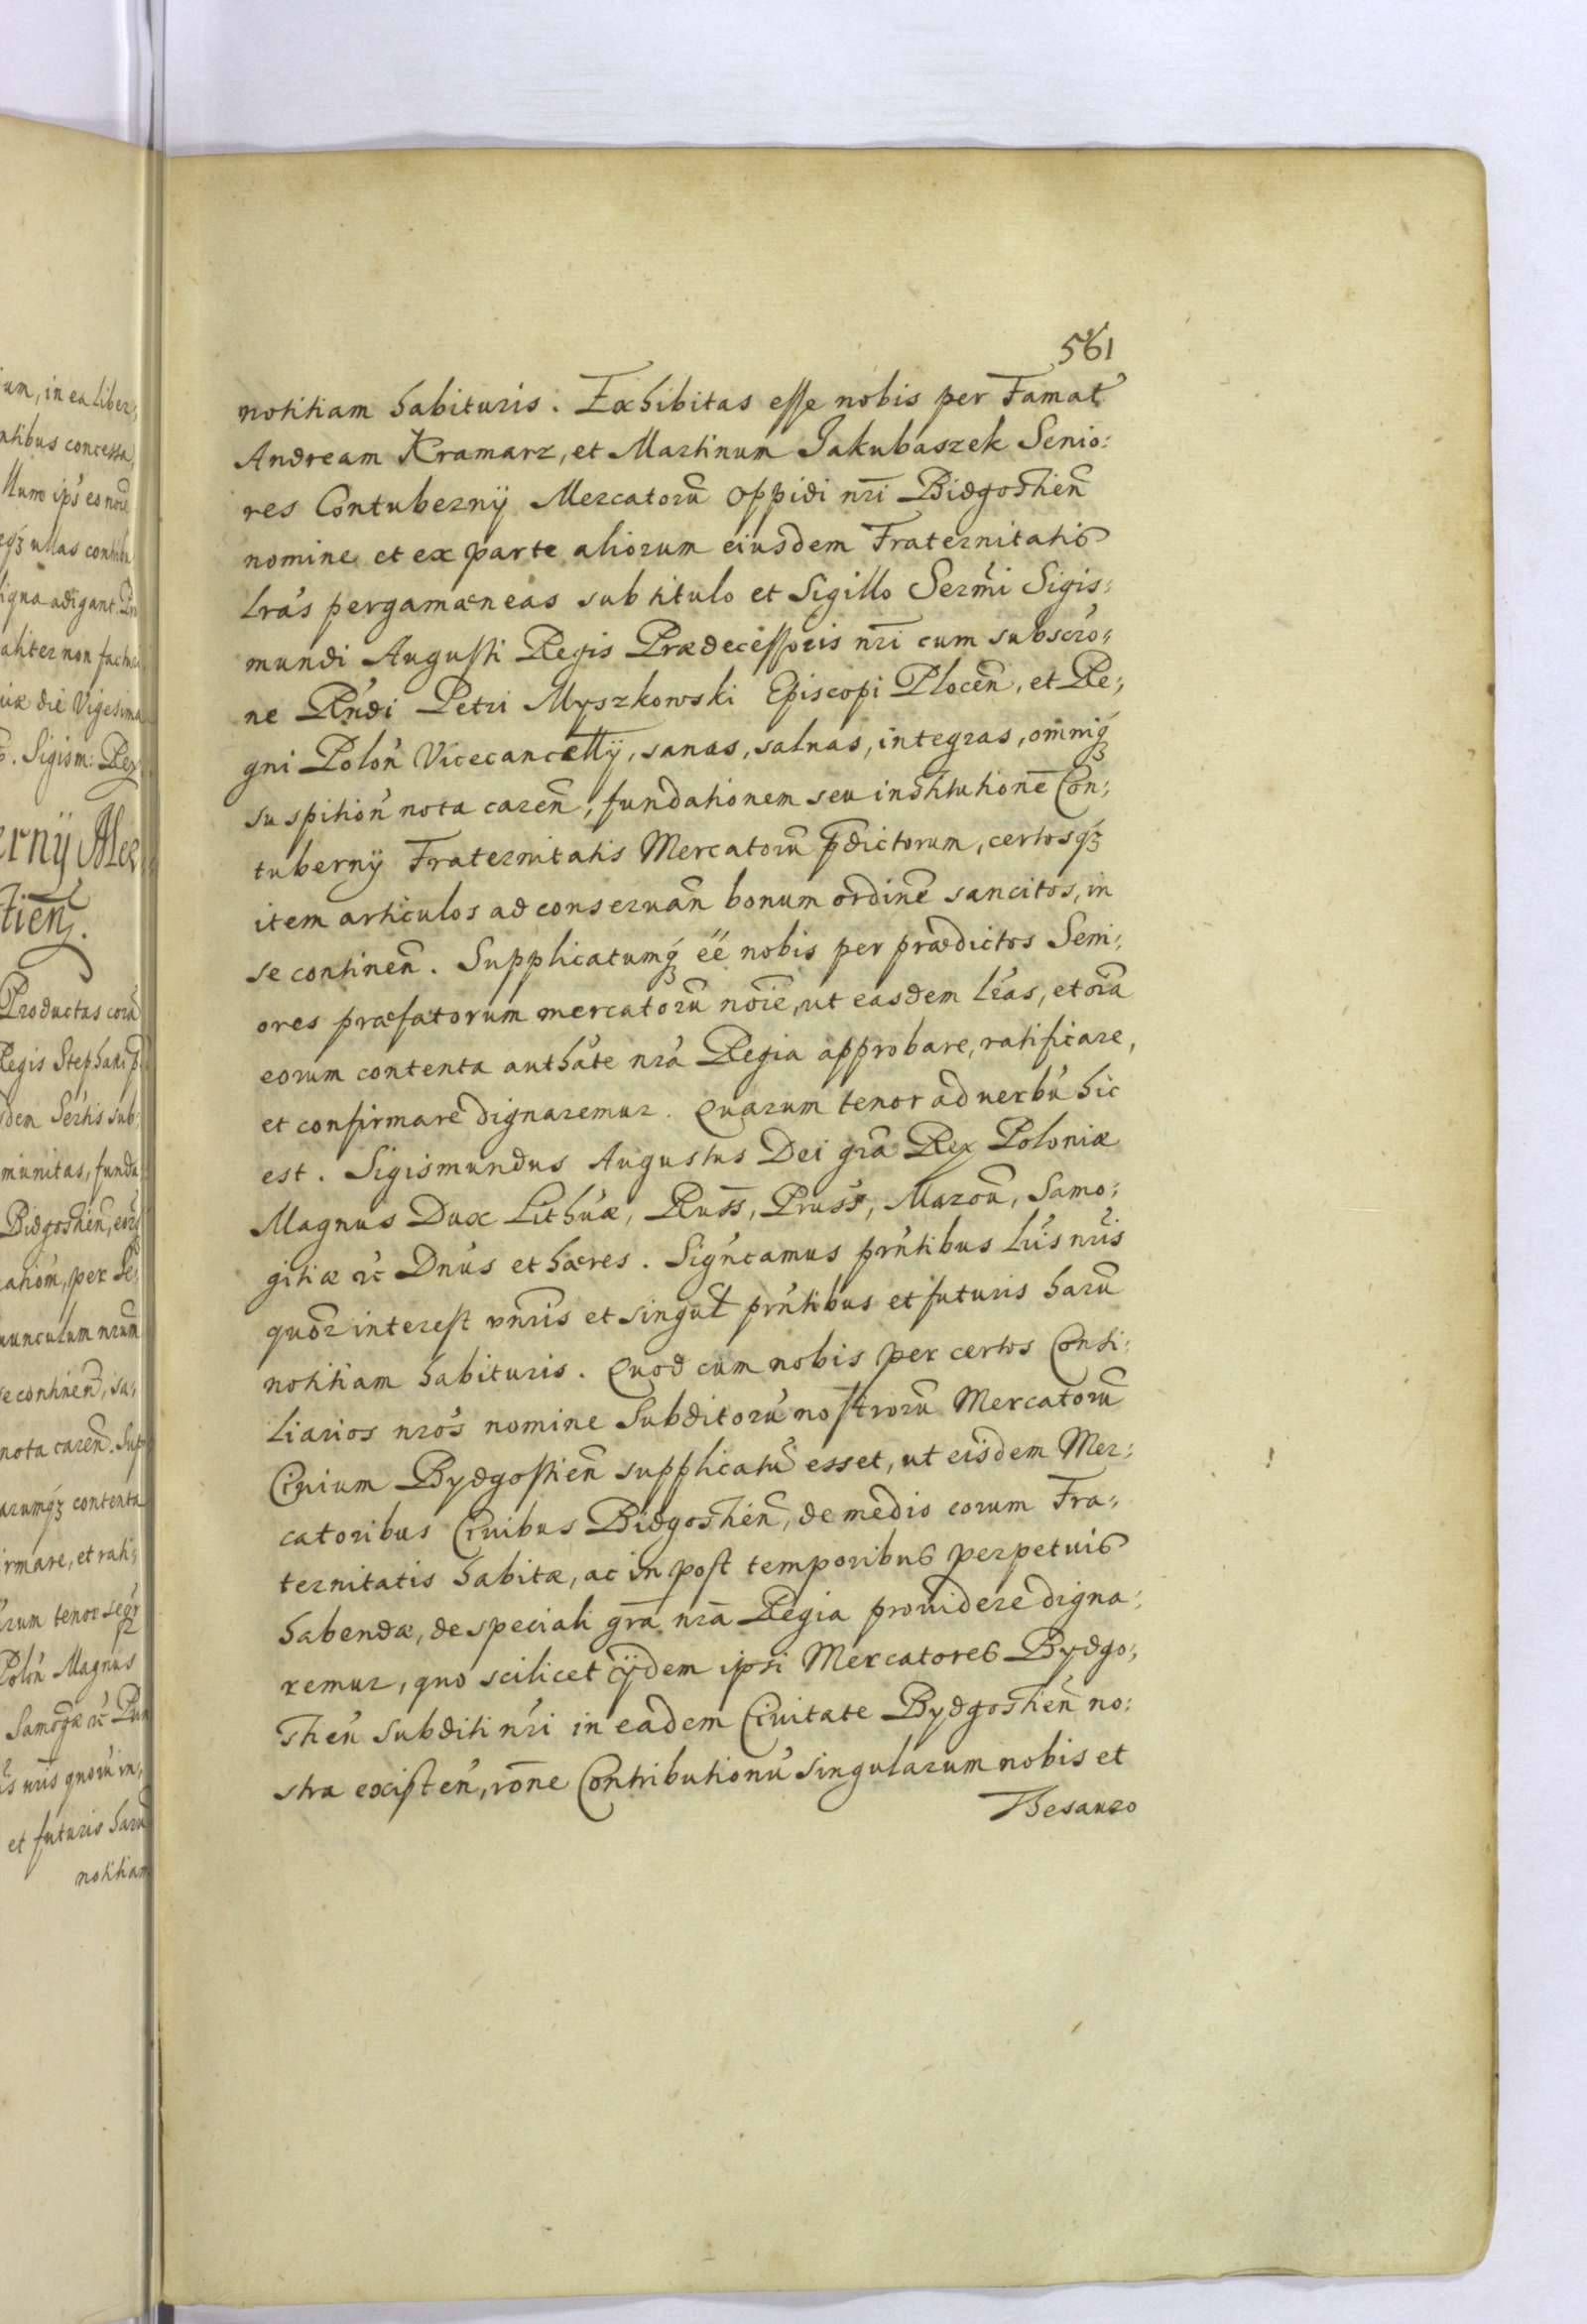 um, in ea liber,
ntibus concessa,
eqz ullas contribu
aliter non factur
uix die Vigesima
Sigism: Rex
ernÿ Mer
tien.
Productas corã
Regis Stephani p
munitas, funda
Bidgostien, eorq
nunculum nrum
se continen, sa,
nota caren. Sup
arumqz contenta
irmare, et rati,
Polon Magnus
et futuris harũ
notitiam
561
notitiam habituris. Exhibitas esse nobis per Famat
Andream Kramarz, et Martinum Jakubaszek Senio:
res Contubernÿ Mercatorũ oppidi nr̃i Bidgostieñ
nomine et ex parte aliorum eiusdem Fraternitatis
Lras pergamæneas sub titulo et Sigillo Serm̃i Sigis:
mundi Augusti Regis Prædecessoris nr̃i cum subscro:
ne Rndi Petri Myszkowski Episcopi Ploceñ, et Re;
gni Poloń Vicecancellÿ, sanas, saluas, integras, om̃niq́z
suspitioń nota careñ, fundationem seu institutionẽ Con;
tubernÿ Fraternitatis Mercatorũ p̃dictorum, certosq́z
item articulos ad conseruañ bonum ordinẽ sancitos, in
se contineñ. Supplicatumq́z éé nobis per prædictos Seni:
ores præfatorum mercatorũ noĩe, ut easdem lẽas, et oĩa
eorum contenta autháte nrá Regia approbare, ratificare,
et confirmare dignaremur. Quarum tenor ad uerbũ hic
est. Sigismundus Augustus Dei gr̃a Rex Poloniæ
Magnus Dux Lithúæ, Russ̃, Prusś, Mazoũ, Samo;
gitiæ &c Dnús et hæres. Signćamus prńtibus lŕis nrĩs
quor interest vnr̃is et singul prńtibus et futuris harũ
notitiam habituris. Quod cum nobis per certos Consi:
liarios nros nomine Subditorũ nostrorũ Mercatorũ
Ciuium Bydgostieñ supplicatũ esset, ut eisdem Mer:
catoribus Ciuibus Bidgostień, de medio eorum Fra;
ternitatis habitæ, ac in post temporibus perpetuis
habendæ, de speciali gr̃a nr̃a Regia prouidere digna:
remur, quo scilicet iÿdem ipsi Mercatores Bydgo;
stień Subditi nŕi in eadem Ciuitate Bydgostień no:
stra existeń, rõne Contributionũ singularum nobis et
Thesauro